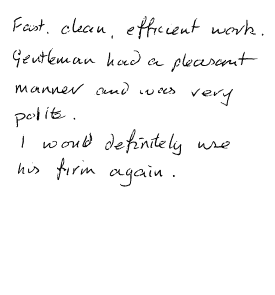 Fast. clean, efficient work.
Gentleman had a pleasant
manner and was very
polite.
I would definitely use
his firm again.